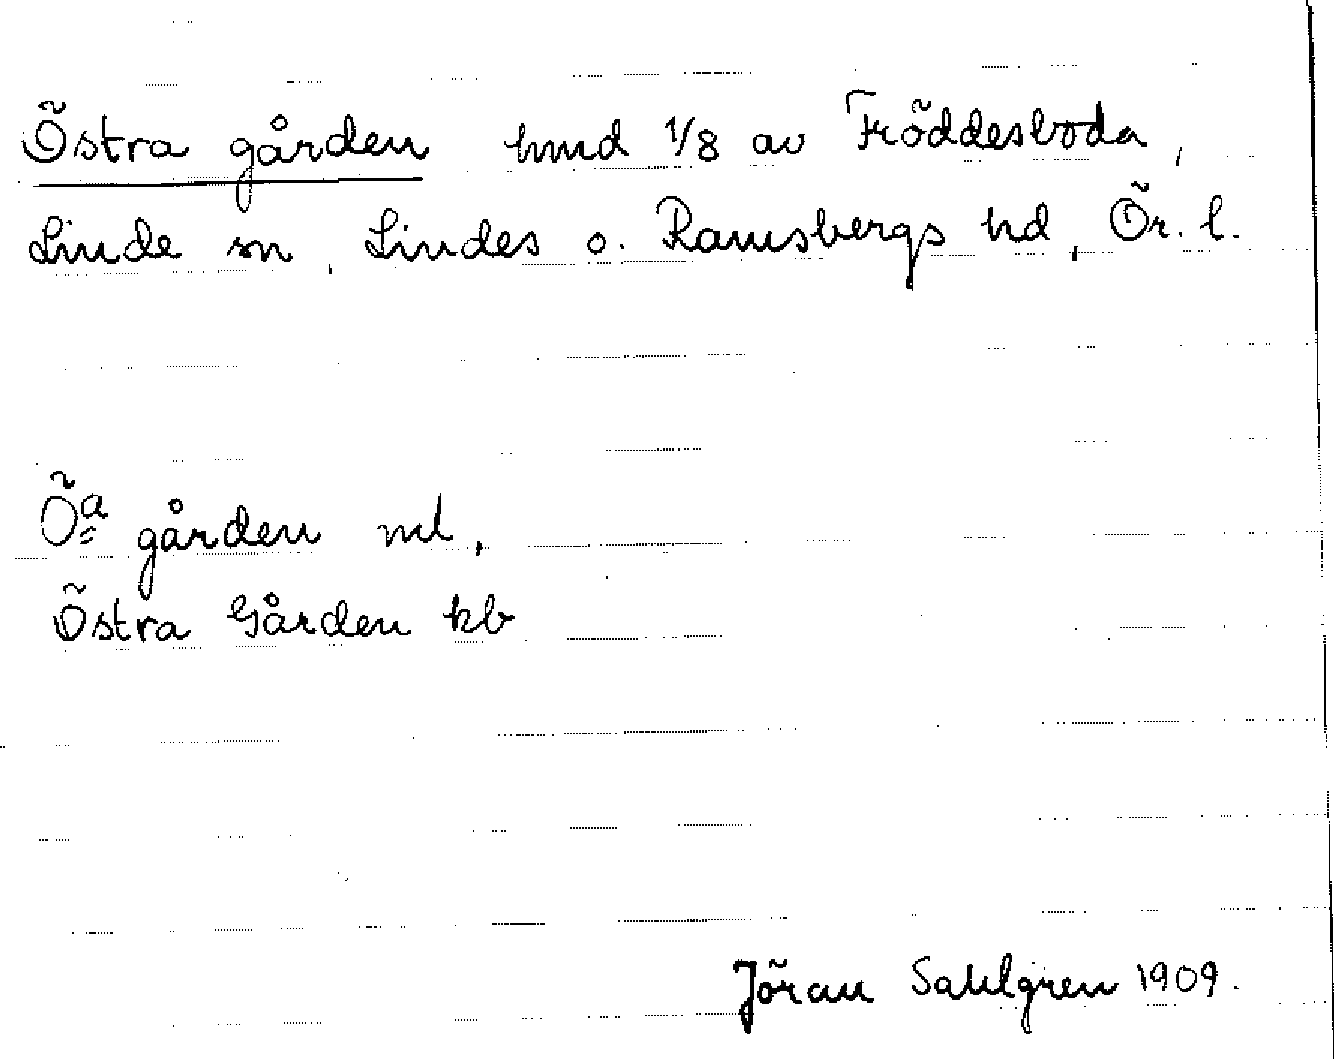 Östra gården hmd 1/8 av Fröddesboda,
Linde sn, Lindes o. Ramsbergs hd, Ör. l.
Öa gården ml,
Östra Gården kb
Jöran Sahlgren 1909.